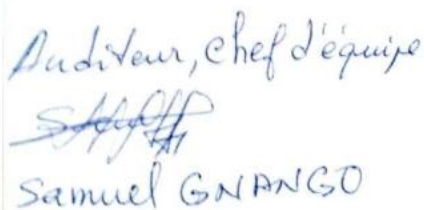 Auditeur, chef d'équipe
Samuel GNANGO